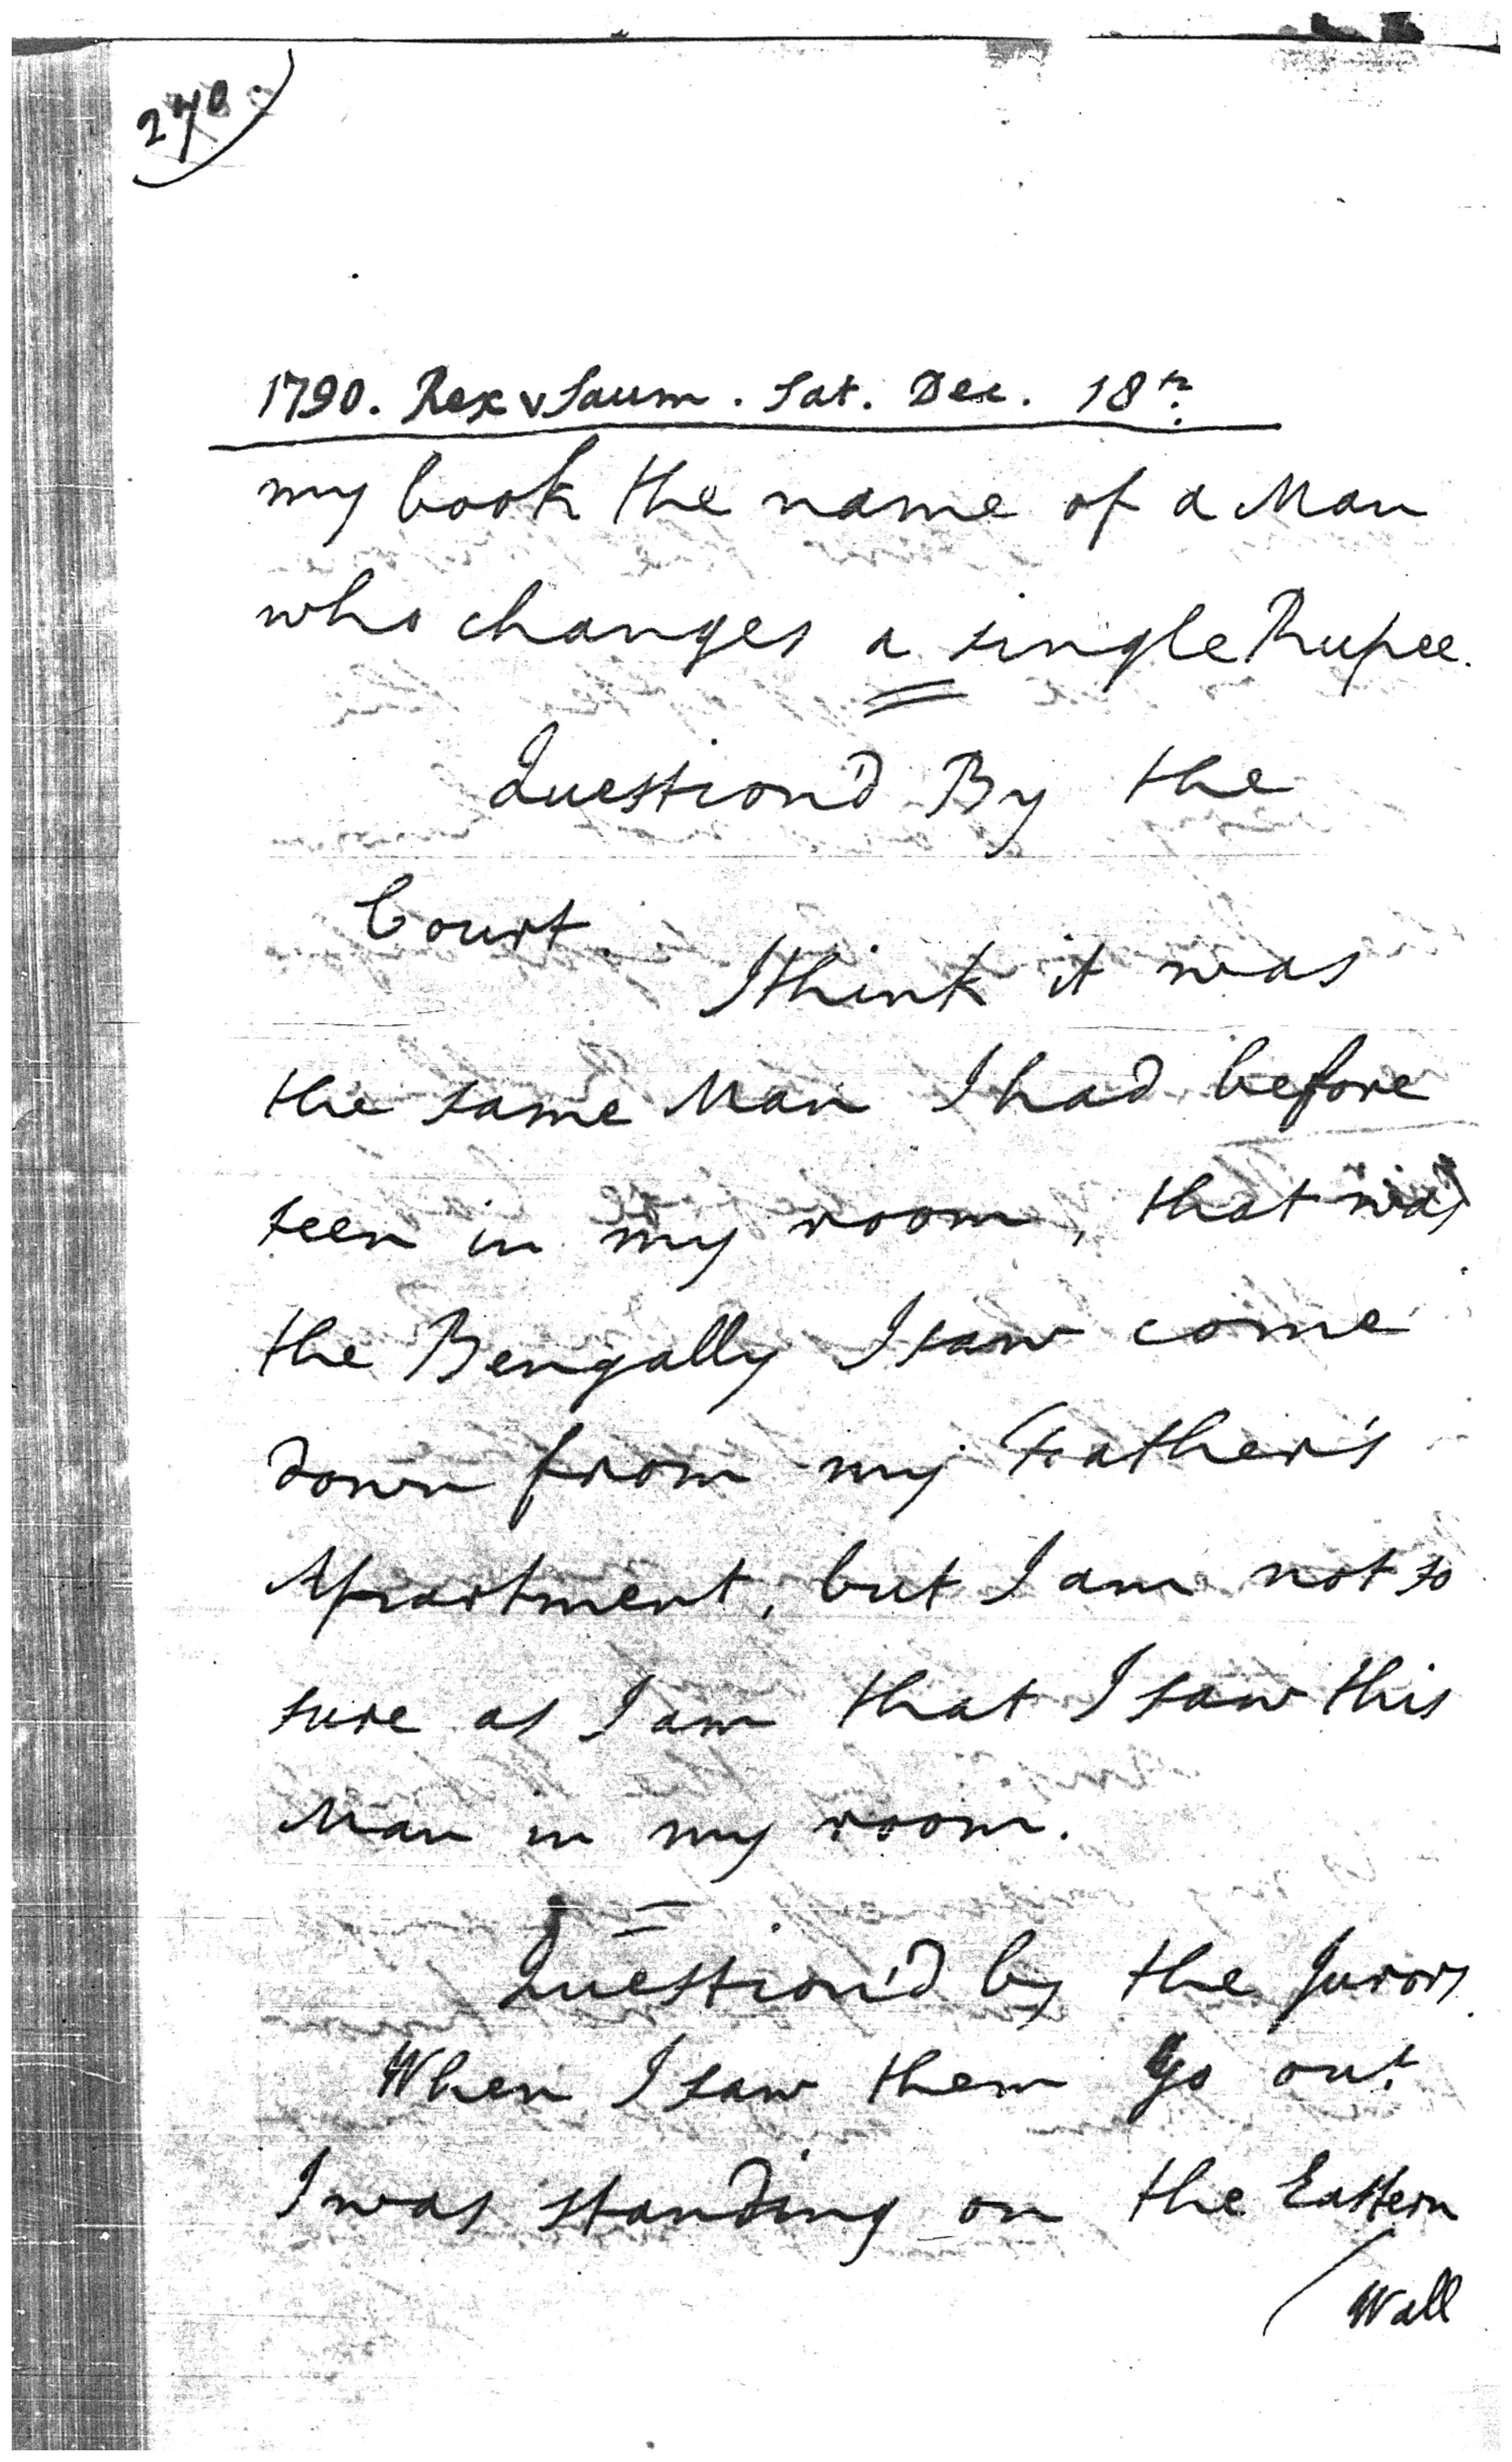 270
1790. Rex v Saum. Sat. Dec. 18th.
my book the name of a Man
who changes a single Rupee.
Question'd By the
Court.
I think it was
the same Man I had before
seen in my room, that was
the Bengally I saw come
down from my Father's
Apartment, but I am not so
sure as I am that I saw this
Man in my room.
Question'd by the Jurors.
When I saw them go out
I was standing on the Eastern
Wall